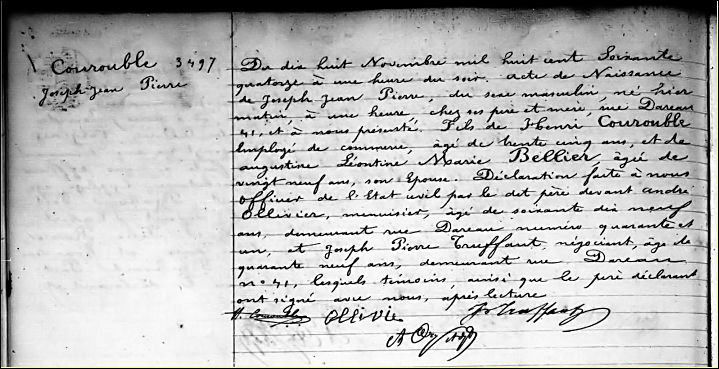 Courouble 3497
Joseph Jean Pierre
Du dix huit Novembre mil huit cent Soixante
quatorze à une heure du soir. acte de Naissance
de Joseph Jean Pierre, du sexe masculin, né hier
matin, à une heure, chez ses père et mère, rue Dareau
41, et à nous présenté. Fils de Henri Courouble
Employé de commerce, âgé de trente cinq ans, et de
augustine Léontine Marie Bellier, âgée de
vingt neuf ans, son Epouse. Déclaration faite à nous
Officier de l'Etat civil par le dit père devant andré
Ollivier, menuisier, âgé de soixante dix neuf
ans, demeurant rue Dareau numéro quarante et
un, et Joseph Pierre Truffaut, négociant, âgé de
quarante neuf ans, demeurant rue Dareau
no 41, lesquels témoins, ainsi que le père déclarant
ont signé avec nous, après lecture
H. Courouble Ollivier